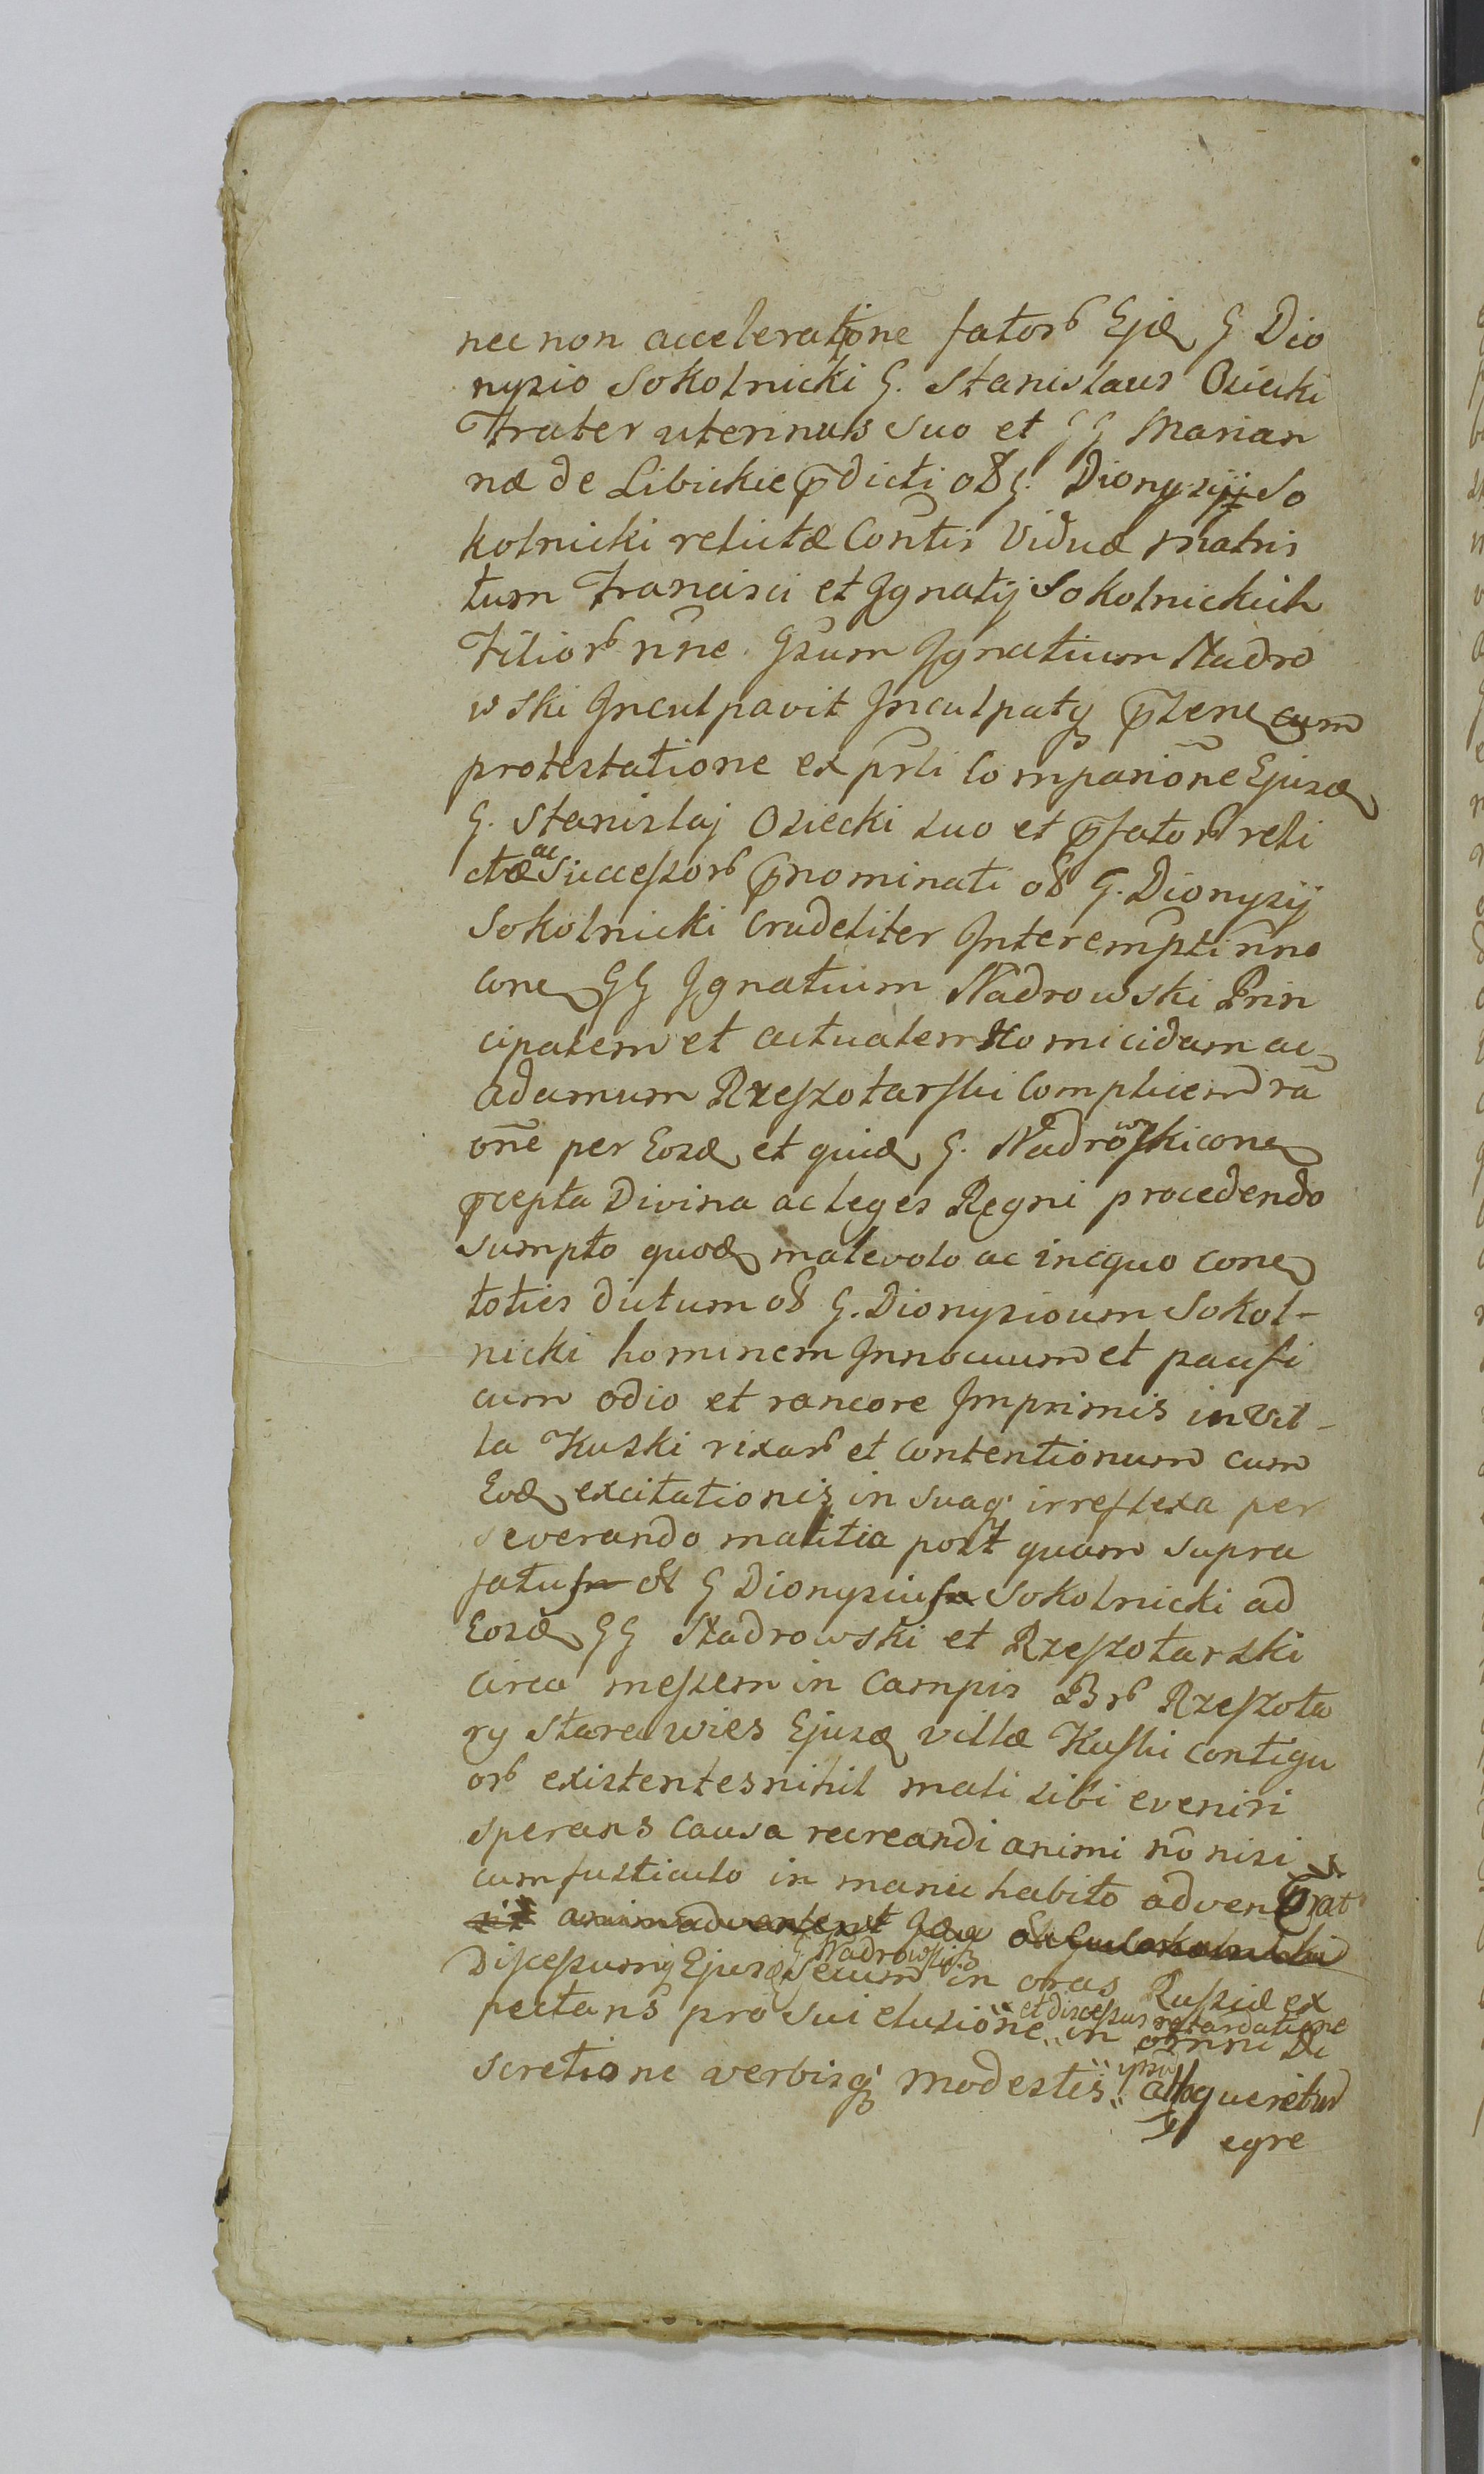 nec non acceleratione fatorb Ejd G Dio
nyzio Sokolnicki G. Stanislaus Osiecki
Frater uterinus suo et GG Marian
næ de Libickie p̄dicti ob G. Dionyzij So
kolnicki relictæ Contis Viduæ Matris
tum Francisci et Ignatij Sokolnickich
Filiorb nne. Gsum Ignatium Nadro
wski Inculpavit Inculpatq p̄sene cum
protestatione ex prli Comparione Ejusd
G. Stanislaj Osiecki suo et p̄fatorb reli
ctæ ac Successorb p̄nominati ob G. Dionyzij
Sokolnicki crudeliter Interempti nne
cone GG Ignatium Nadrowski Prin
cipalem et actualem Homicidam ac
Adamum Rzeszotarski Complicem ra
one per Eosd et quid G. Nadrowski cone
p̄cepta Divina ac leges Regni procedendo
sumpto quod malevolo ac iniquo cone
toties dictum ob G. Dionyzioum Sokol-
nicki hominem Innocuum et pacifi
cum odio et rancore Imprimis in Vil-
la Kuski rixarb et contentionum cum
Eod excitationis in suaq irreflexa per
severando malitia post quam supra
fatus ob G Dionyzius Sokolnicki ad
Eosd GG Nadrowski et Rzeszotarski
circa messem in Campis Brb Rzeszota
ry Stara wies Ejusd villæ Kuski contigu
orb existentes nihil mali sibi eveniri
sperans causa recreandi animi no nisi
cum fusticulo in manu habito advenerat
Discessumq Ejusd G Nadrowski secum in oras Russiæ ex
pectans pro sui elusione et discessus retardatione in omni di
scretione verbisq modestis ipsum alloqueretur
egre